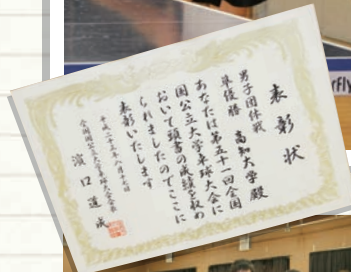 表彰状
男子団体戦
準優勝 高知大学殿
あなたは第五十一回全国
国公立大学卓球大会に
おいて頭書の成績を収め
られましたのでここに
表彰いたします
平成二十三年八月十七日
全国国公立大学卓球大会会長
濵口道成